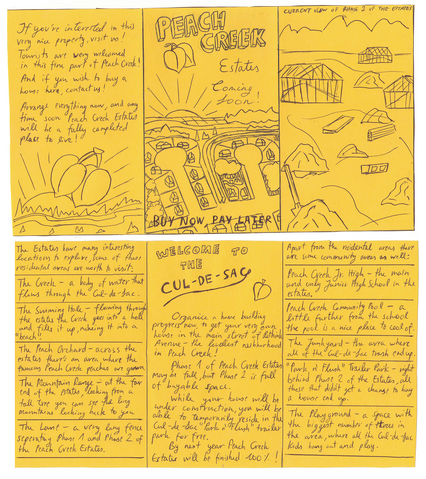 If you're interested in this
very nice property, visit us!
Tourists are very welcomed
in this fine part of Peach Creek!
And if you wish to buy a
house here, contact us!
Arrange everything now, and any
time soon Peach Creek Estates
will be a fully completed
place to live!
PEACH
CREEK
Estates
Coming
soon!
BUY NOW, PAY LATER
CURRENT VIEW OF PHASE 1 OF THE ESTATES
The Estates have many interesting
locations to explore, some of these
residental areas are worth a visit:
The Creek - a body of water that
flows through the Cul-de-Sac.
The Swimming Hole - flowing through
the estates the Creek goes into a hole
and fills it up, making it into a
"beach".
The Peach Orchard - across the
estates there's an area where the
famous Peach Creek peaches are grown
The Mountain Range - at the far
end of the estates, looking from a
tall tree you can see the long
mountains looking back to you.
The Lane - a very long fence
seperating Phase 1 and Phase 2 of
the Peach Creek Estates.
WELCOME TO
THE
CUL-DE-SAC
Organize a home building
progress now to get your very own
house in the main street of Rethink
Avenue - the liveliest neighborhood
in Peach Creek!
Phase 1 of Peach Creek Estates
may be full, but Phase 2 is full
of buyable space.
While your house will be
under construction, you will be
able to temporarily reside in the
Cul-de-Sac "Park n' Flush" trailer
park for free.
By next year Peach Creek
Estates will be finished 100%!
Apart from the residental areas there
are some community areas as well:
Peach Creek Jr. High - the main
and only Junior High School in the
estates.
Peach Creek Community Pool - a
little further from the school
the pool is a nice place to cool off.
The Junkyard - the area where
all of the Cul-de-Sac trash end up.
"Park n' Flush" Trailer Park - right
behind Phase 2 of the Estates, all
those that didn't get a chance to buy
a house end up.
The Playground - a space with
the biggest number of trees in
the area, where all the Cul-de-Sac
kids hang out and play.